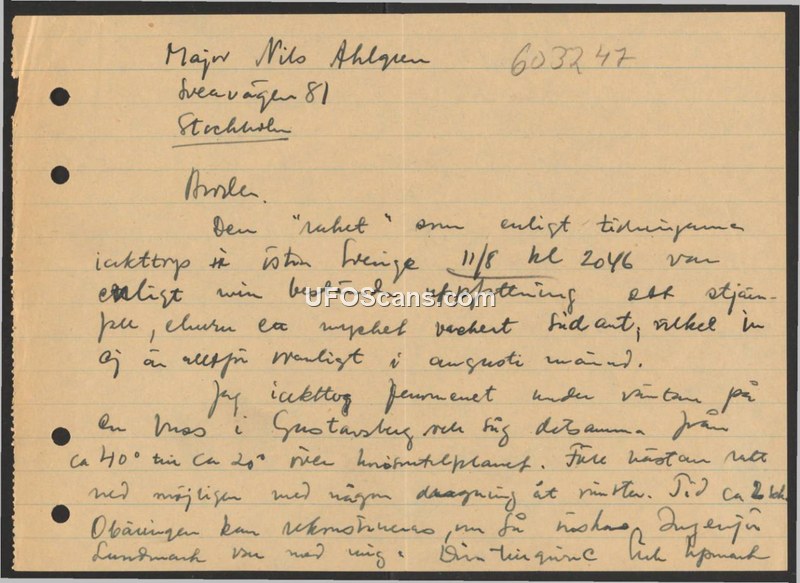 Major Nils Ahlgren
603247
Sveavägen 81
Stockholm
Broder.
Den "raket" som enligt tidningarna
iakttogs i östra Sverige 11/8 kl 2046 var
enligt min bestämda uppfattning ett stjärn-
fall, ehuru ett mycket vackert sådant, vilket ju
ej är alltför ovanligt i augusti månad.
UFOScans.com
Jag iakttog fenomenet under väntan på
en buss i Gustavsberg och såg detsamma från
ca 40° till ca 20° över horisontalplanet. Föll nästan rätt
ned möjligen med någon dragning åt vänster. Tid ca 2
kan rekonstrueras, om så önskas. Ingenjör
Lundmark var med mig.